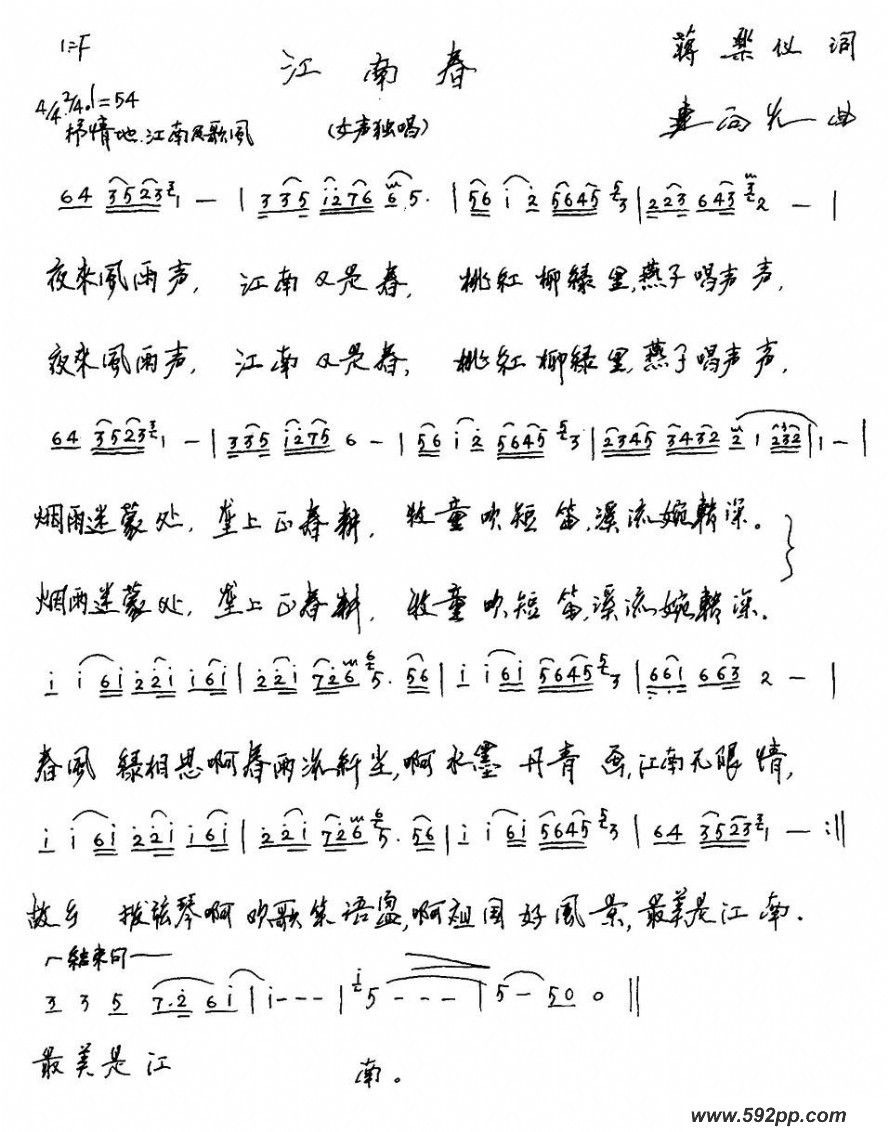 1=F
江南春
蒋樂仪 词
4/4 2/4 ♩=54
抒情地.江南民歌風
(女声独唱)
曲
64 35231 — | 335 1276 65. | 56 i 2 5645 3 | 223 643 2 — |
夜來風雨声, 江南又是春, 桃紅柳綠里,燕子唱声声,
夜來風雨声, 江南又是春, 桃紅柳綠里,燕子唱声声,
64 35231 — | 335 i275 6 — | 56 i 2 5645 3 | 2345 3432 2 1 232 | 1 — |
烟雨迷蒙处, 垄上正春耕, 牧童吹短笛,溪流婉轉深。
烟雨迷蒙处, 垄上正春耕, 牧童吹短笛,溪流婉轉深.
i i 6i 22i i6i | 22i 726 5. 56 | i i 6i 5645 3 | 66i 663 2 — |
春風 綠相思啊春雨流紅尘,啊水墨丹青 画,江南无限情,
i i 6i 22i i6i | 22i 726 5. 56 | i i 6i 5645 3 | 64 3523 1 — :||
故乡 拨弦琴啊吹歌笑语盈,啊祖国好風景,最美是江南.
结束句
3 3 5 7.2 6i | i - - - | 5 - - - | 5 — 50 0 ||
最美是江 南。
www.592pp.com